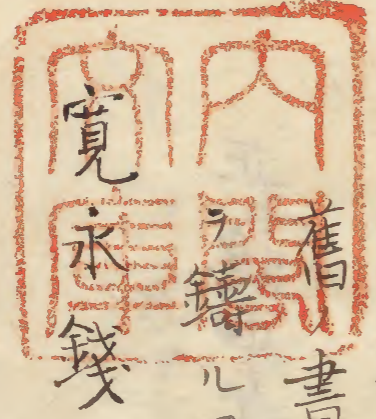 舊ノ書
ヲ鑄ル
寛永錢
内閣文庫